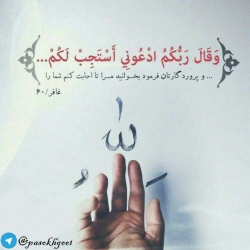 وَقَالَ رَبُّكُمُ ادْعُونِي أَسْتَجِبْ لَكُمْ...
... و پروردگارتان فرمود بخوانید مرا تا اجابت کنم شما را
غافر/۶۰
الله
@pasokhgoet